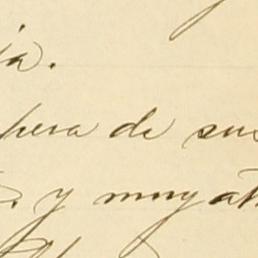 ia.
pera de sus
S. y muy at